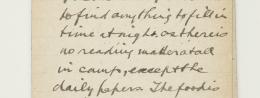 to find anything to fill in
time at night, as there is
no reading matter at all
in camp, except the
daily papers. The food is